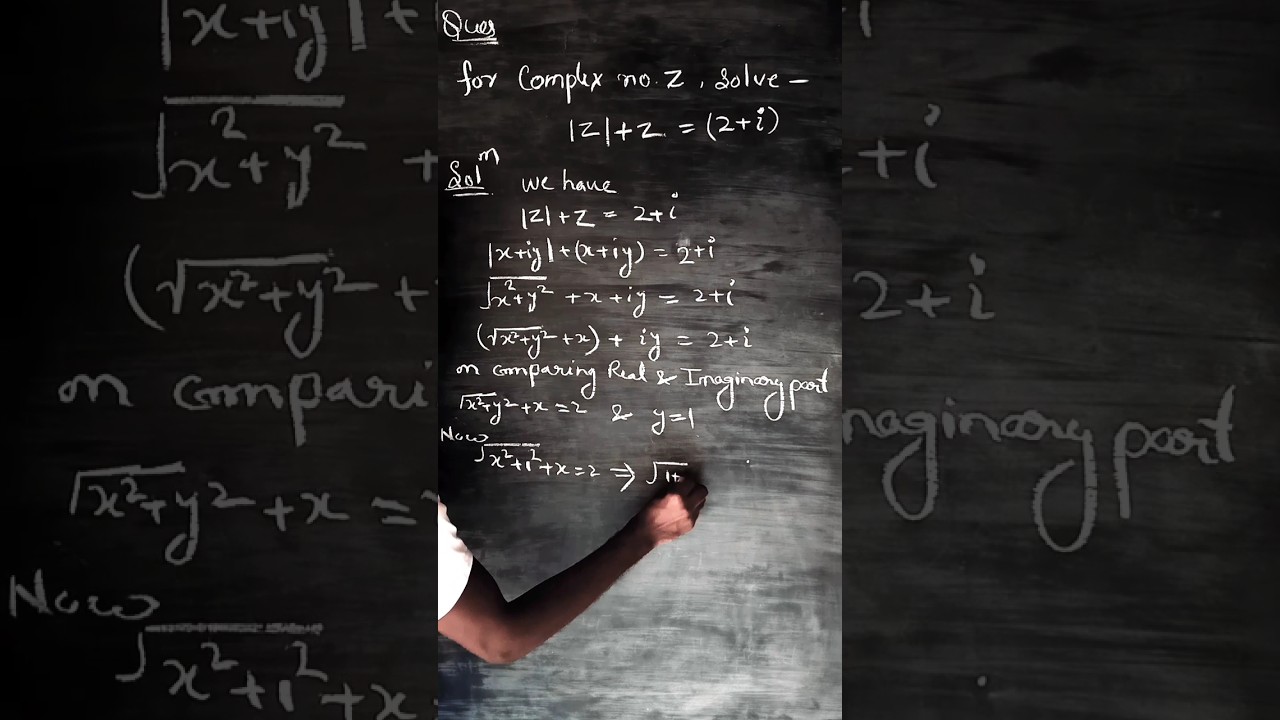 Ques
for Complex no. Z, Solve –
|Z|+Z = (2+i)
Solⁿ we have
|Z|+Z = 2+i
|x+iy|+(x+iy) = 2+i
√x²+y² + x + iy = 2+i
(√x²+y² + x) + iy = 2+i
on comparing Real & Imaginary part
√x²+y² + x = 2 & y = 1
Now
√x²+1² + x = 2 ⇒ √1+